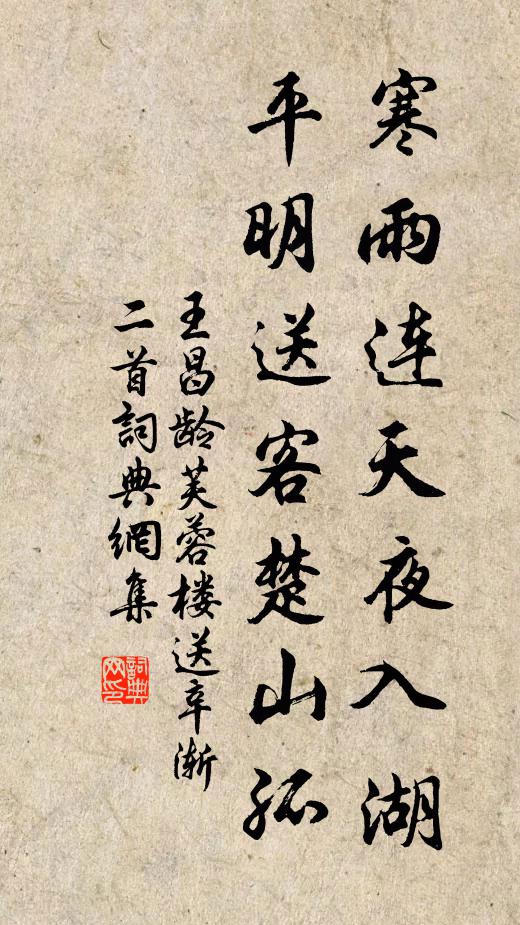 寒雨连天夜入湖
平明送客楚山孤
王昌龄芙蓉楼送辛渐
二首詞典網集
詞典网印